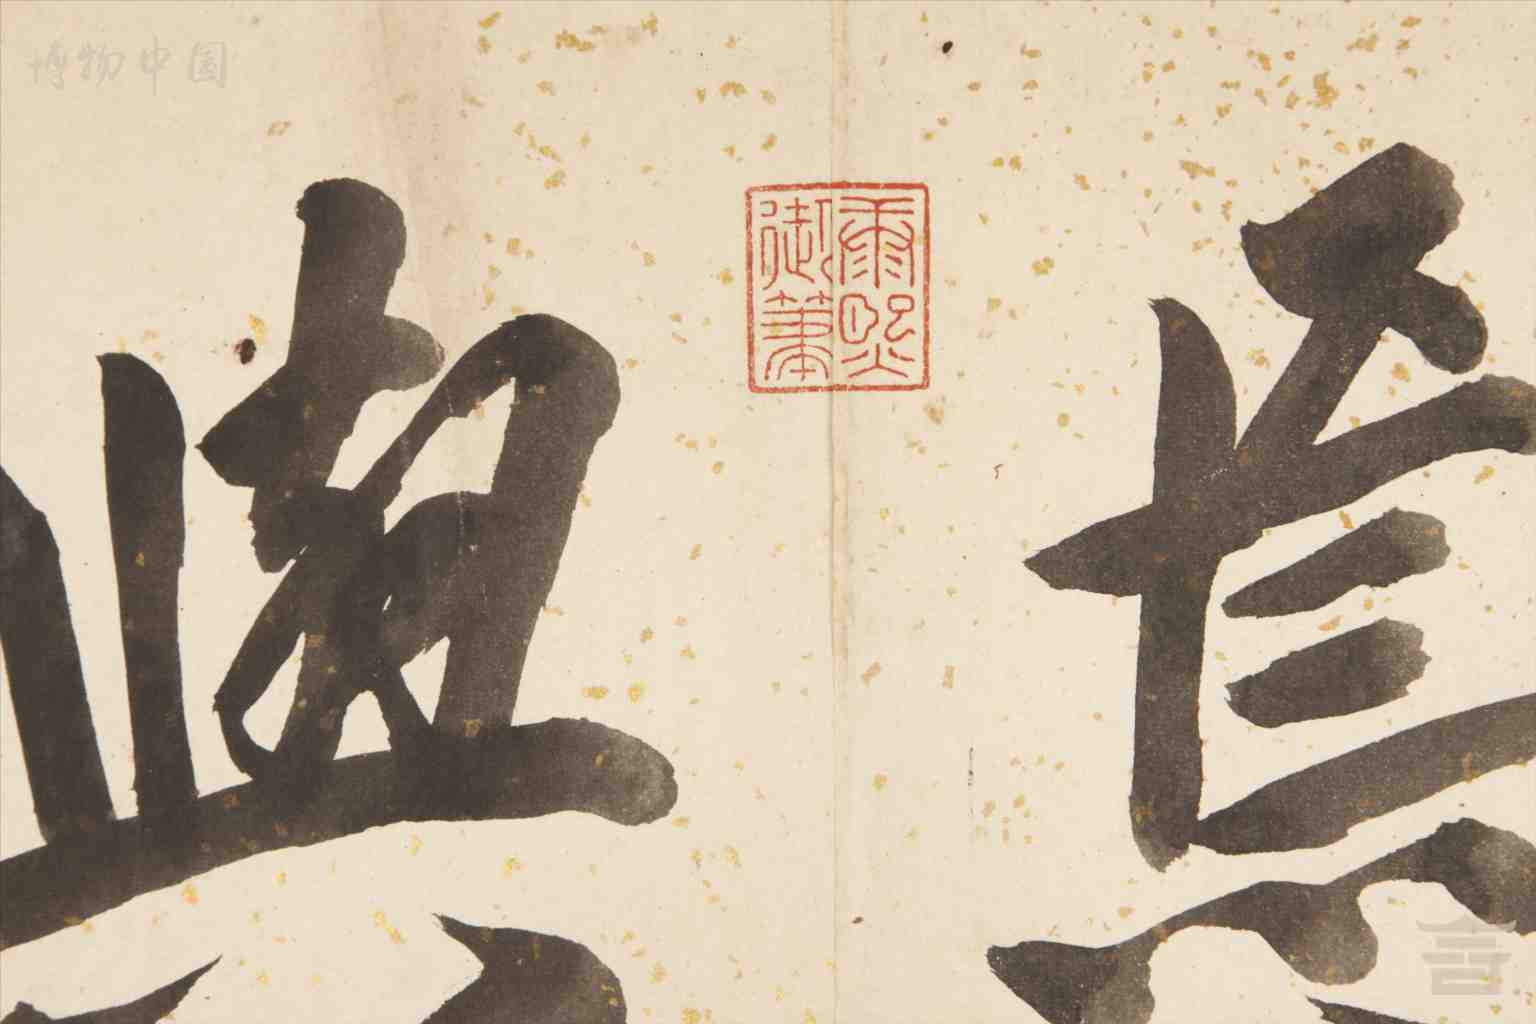 博物中国
真
康熙
御筆